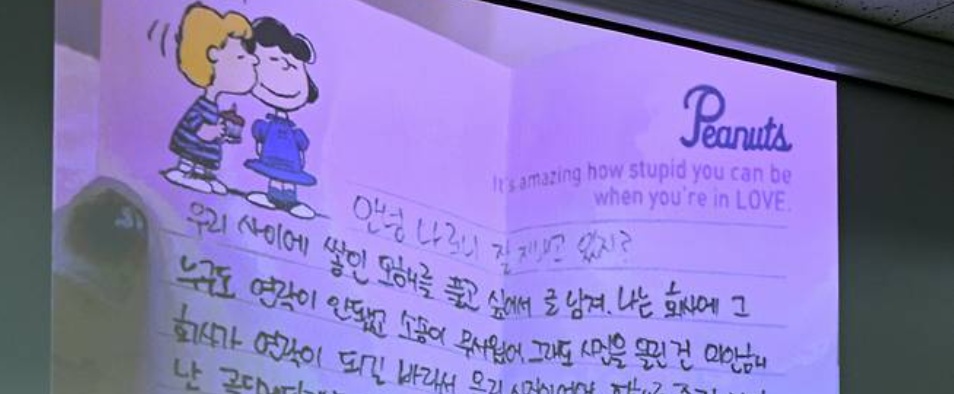 Peanuts
It's amazing how stupid you can be
when you're in LOVE.
안녕 나르니 잘 지내고 있지?
우리 사이에 쌓인 오해를 풀고 싶어서 글 남겨. 나는 회사에 그
누구도 연락이 안됐고 소송이 무서웠어. 그래도 사진을 올린 건 미안합니
회사가 연락이 되길 바라서 우리
난